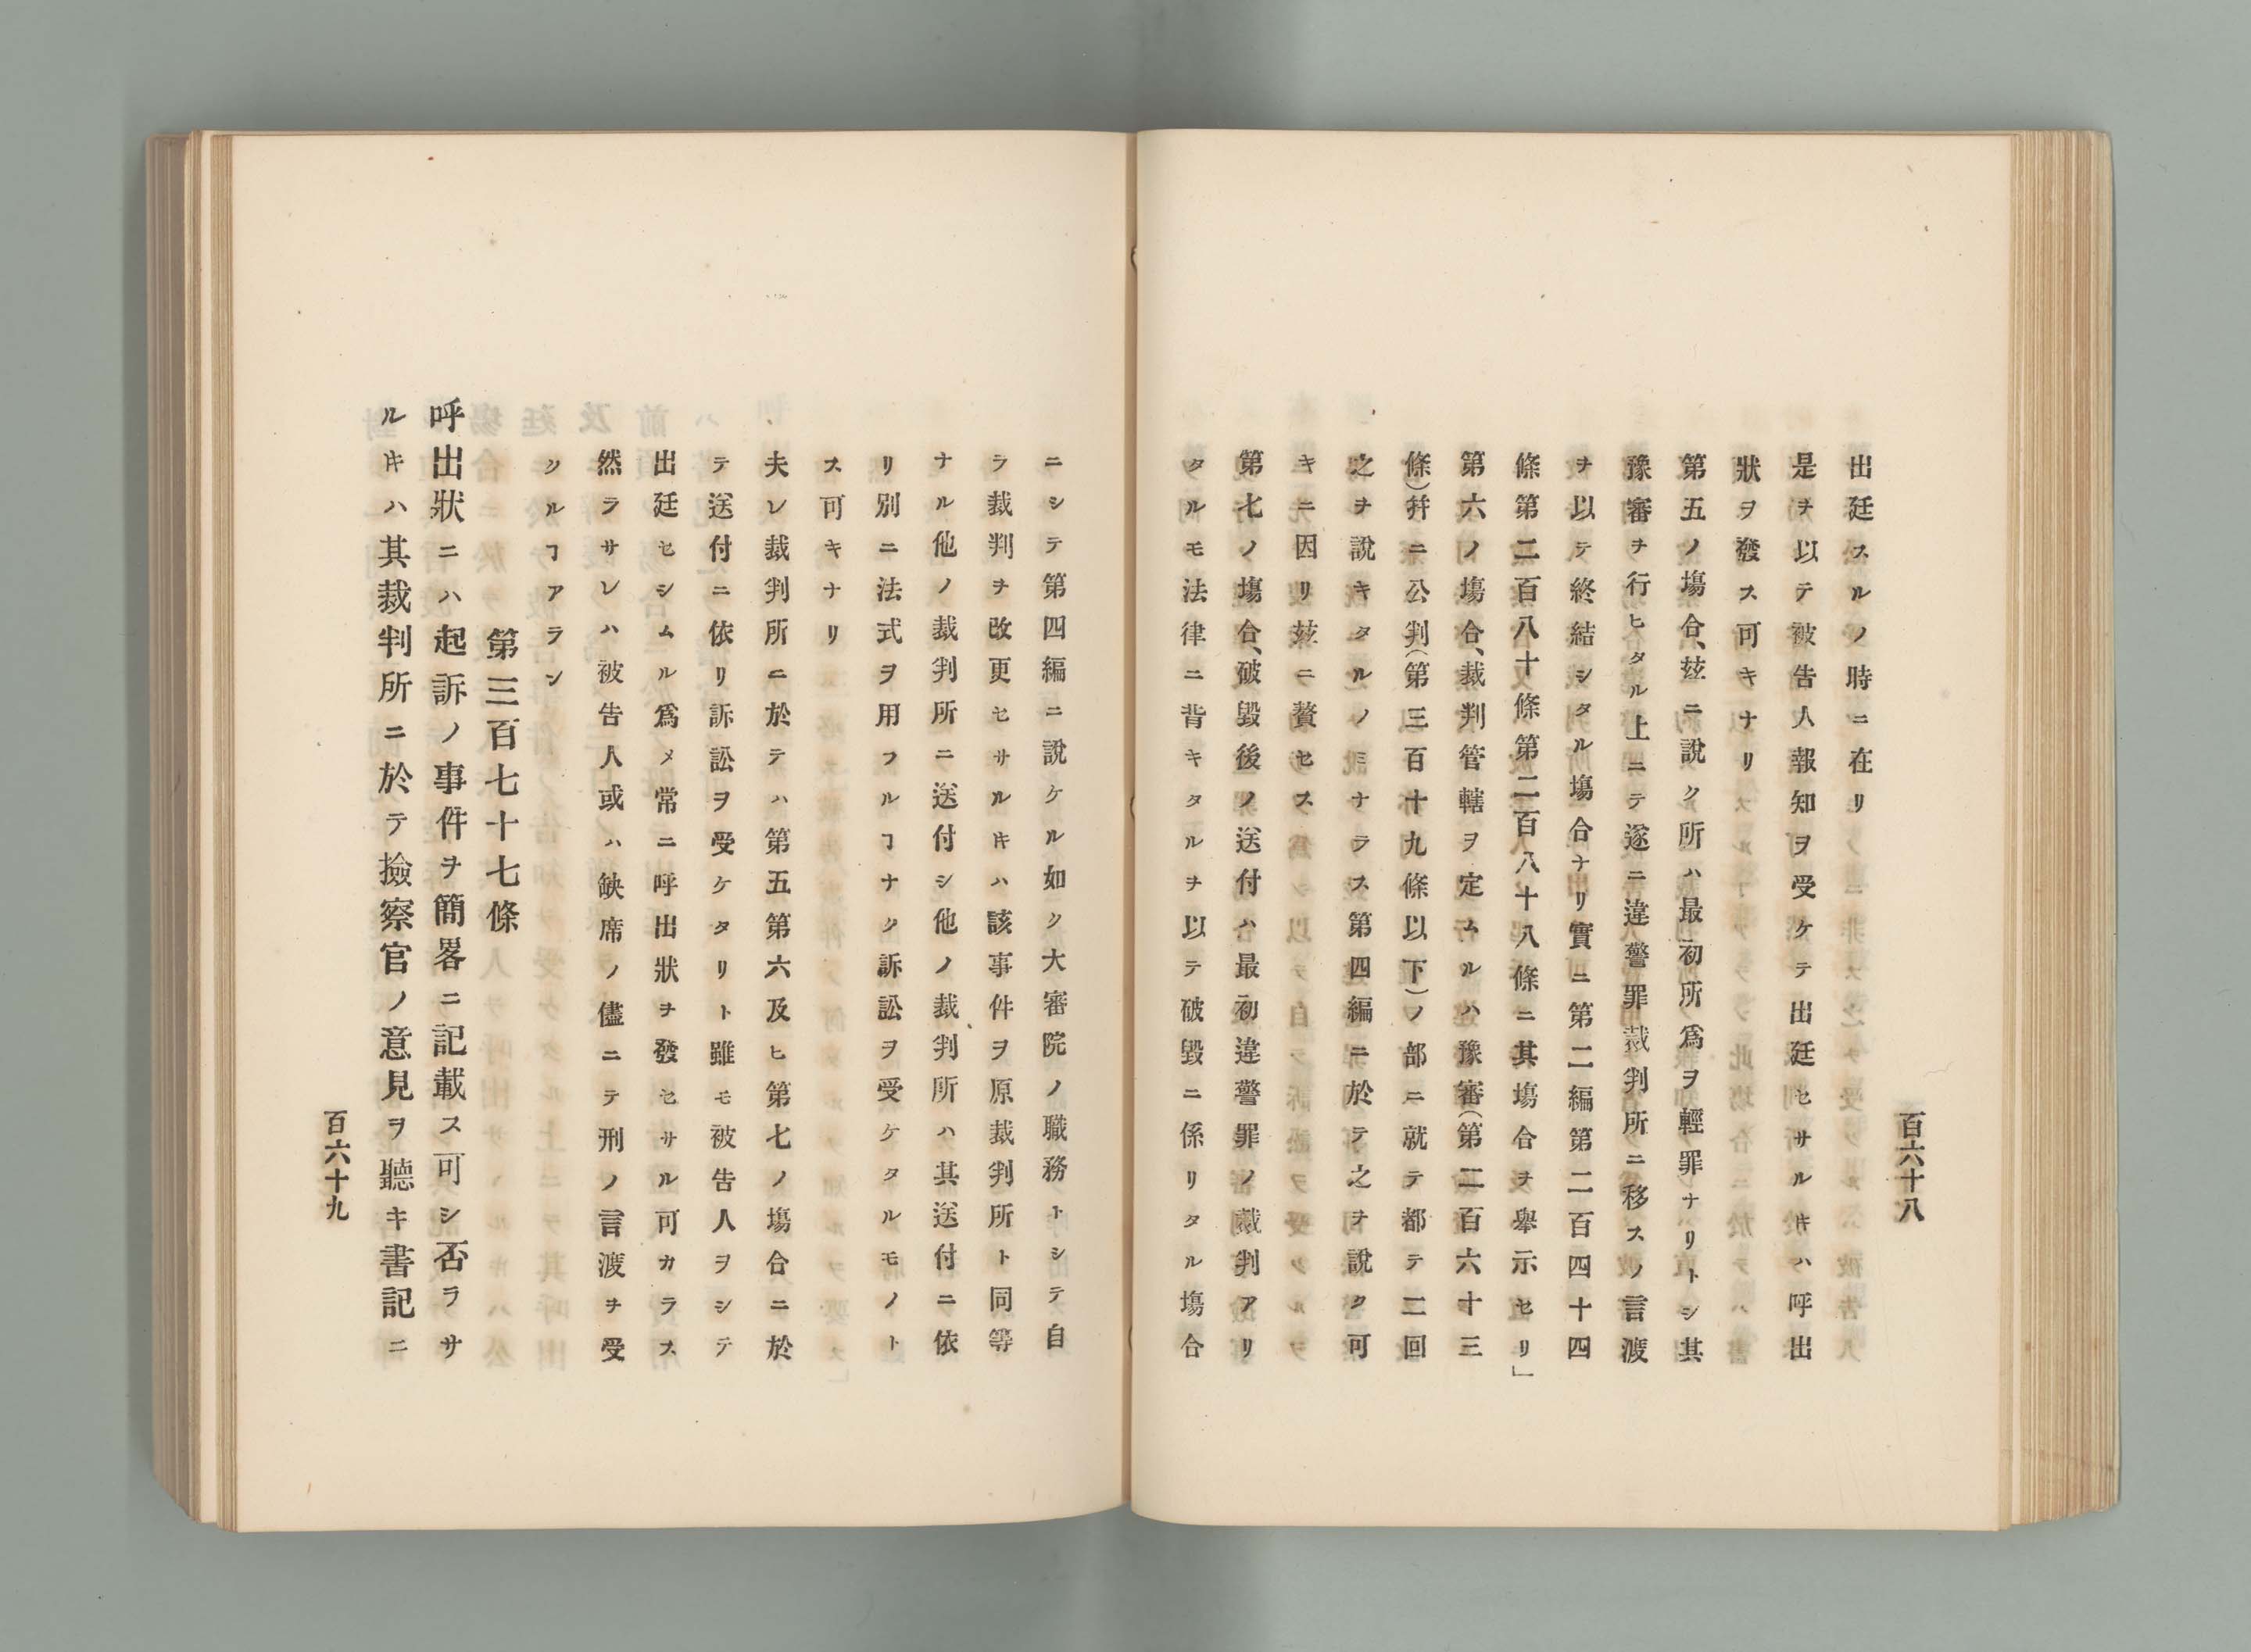 百六十八
出廷スルノ時ニ在リ
是ヲ以テ被告人報知ヲ受ケテ出廷セサルキハ呼出
狀ヲ發ス可キナリ
第五ノ塲合、玆ニ說ク所ハ最初所爲ヲ輕罪ナリトシ其
豫審ヲ行ヒタル上ニテ遂ニ違警罪裁判所ニ移スノ言渡
ヲ以テ終結シタル塲合ナリ實ニ第二編第二百四十四
條第二百八十條第二百八十八條ニ其塲合ヲ擧示セリ」
第六ノ塲合、裁判管轄ヲ定ムルハ豫審(第二百六十三
條)幷ニ公判(第三百十九條以下)ノ部ニ就テ都テ二回
之ヲ說キタルノミナラス第四編ニ於テ之ヲ說ク可
キニ因リ玆ニ贅セス
第七ノ塲合、破毀後ノ送付ハ最初違警罪ノ裁判アリ
タルモ法律ニ背キタルヲ以テ破毀ニ係リタル塲合
ニシテ第四編ニ說ケル如ク大審院ノ職務トシテ自
ラ裁判ヲ改更セサルキハ該事件ヲ原裁判所ト同等
ナル他ノ裁判所ニ送付シ他ノ裁判所ハ其送付ニ依
リ別ニ法式ヲ用フルヿナク訴訟ヲ受ケタルモノト
ス可キナリ
夫レ裁判所ニ於テハ第五第六及ヒ第七ノ塲合ニ於
テ送付ニ依リ訴訟ヲ受ケタリト雖モ被告人ヲシテ
出廷セシムル爲メ常ニ呼出狀ヲ發セサル可カラス
然ラサレハ被告人或ハ缺席ノ儘ニテ刑ノ言渡ヲ受
クルヿアラン
第三百七十七條
呼出狀ニハ起訴ノ事件ヲ簡畧ニ記載ス可シ否ラサ
ルキハ其裁判所ニ於テ撿察官ノ意見ヲ聽キ書記ニ
百六十九